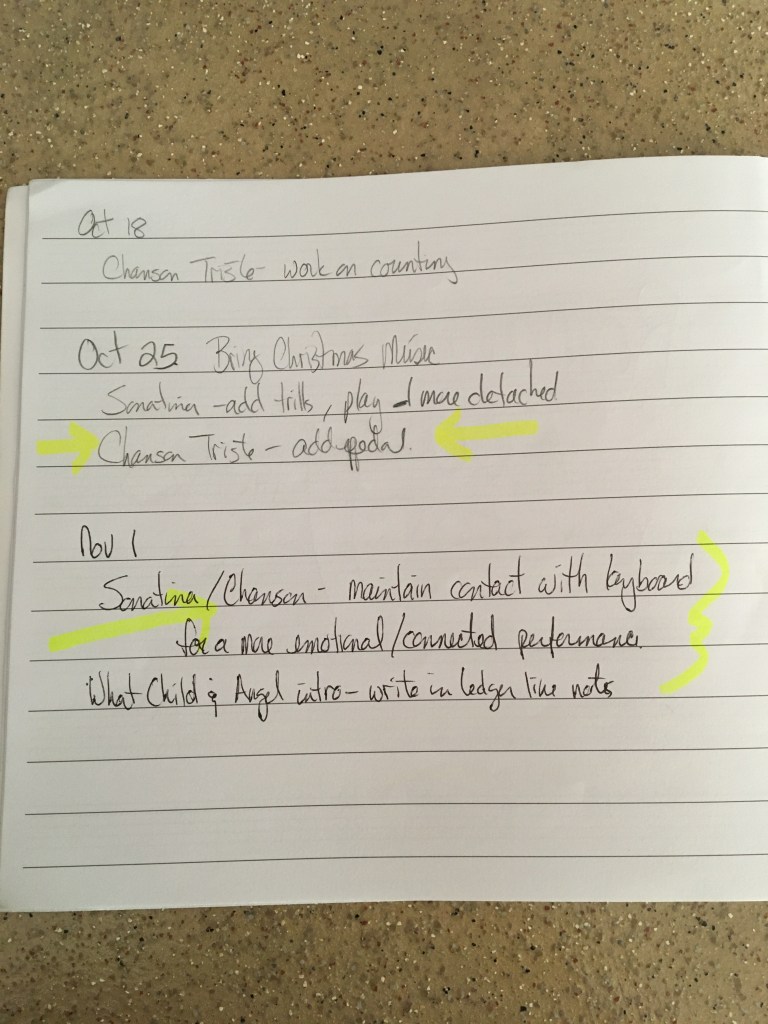 Oct 18
Chanson Triste - work on counting
Oct 25 Bring Christmas Music
Sonatina - add trills, play ♩ more detached
Chanson Triste - add pedal.
Nov 1
Sonatina/Chanson - maintain contact with keyboard
for a more emotional/connected performance.
What Child & Angel intro - write in ledger line notes